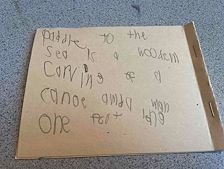 paddle to the
sea is a woodem
Carving of a
canoe anda man
one foot long